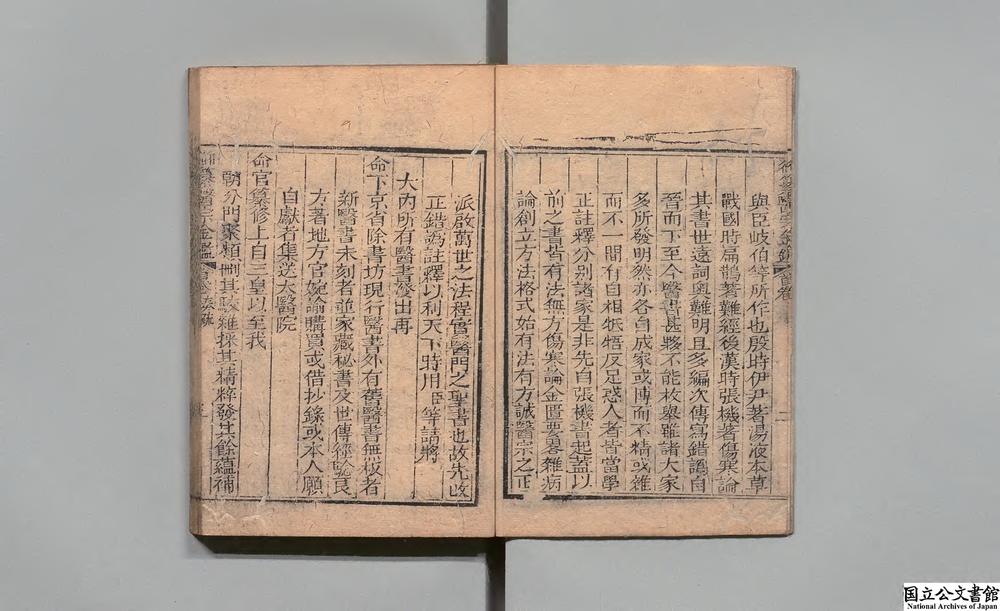 與臣岐伯等所作也殷時伊尹著湯液本草
戰國時扁鵲著難經後漢時張機著傷寒論
其書世遠詞奧難明且多編次傳寫錯譌自
晉而下至今醫書甚夥不能枚舉雖諸大家
多所發明然亦各自成家或博而不精或雜
而不一間有自相牴牾反足惑人者皆當學
正註釋分别諸家是非先自張機書起蓋以
前之書皆有法無方傷寒論金匱要畧雜病
論創立方法格式始有法有方誠醫宗之正
派啟萬世之法程實醫門之聖書也故先改
正錯譌註釋以利天下時用臣等請將
大內所有醫書發出再
命下京省除書坊現行醫書外有舊醫書無板者
新醫書未刻者並家藏秘書及世傳經驗良
方著地方官婉諭購買或借抄錄或本人願
自獻者集送太醫院
命官纂修上自三皇以至我
朝分門聚類刪其駁雜採其精粹發其餘蘊補
御纂醫宗金鑑
首卷
二
国立公文書館
National Archives of Japan